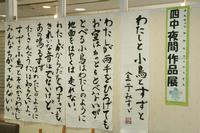 四中夜間作品展
わたしと小鳥とすずと
金子みすゞ
わたしが両手をひろげても
お空はちっともとべないが
とべる小鳥はわたしのように
地面をはやくは走れない
わたしがからだをゆすっても
きれいな音はでないけど
あの鳴るすずはわたしのように
たくさんなうたは知らないよ
すずと小鳥とそれからわたし
みんなちがって、みんないい